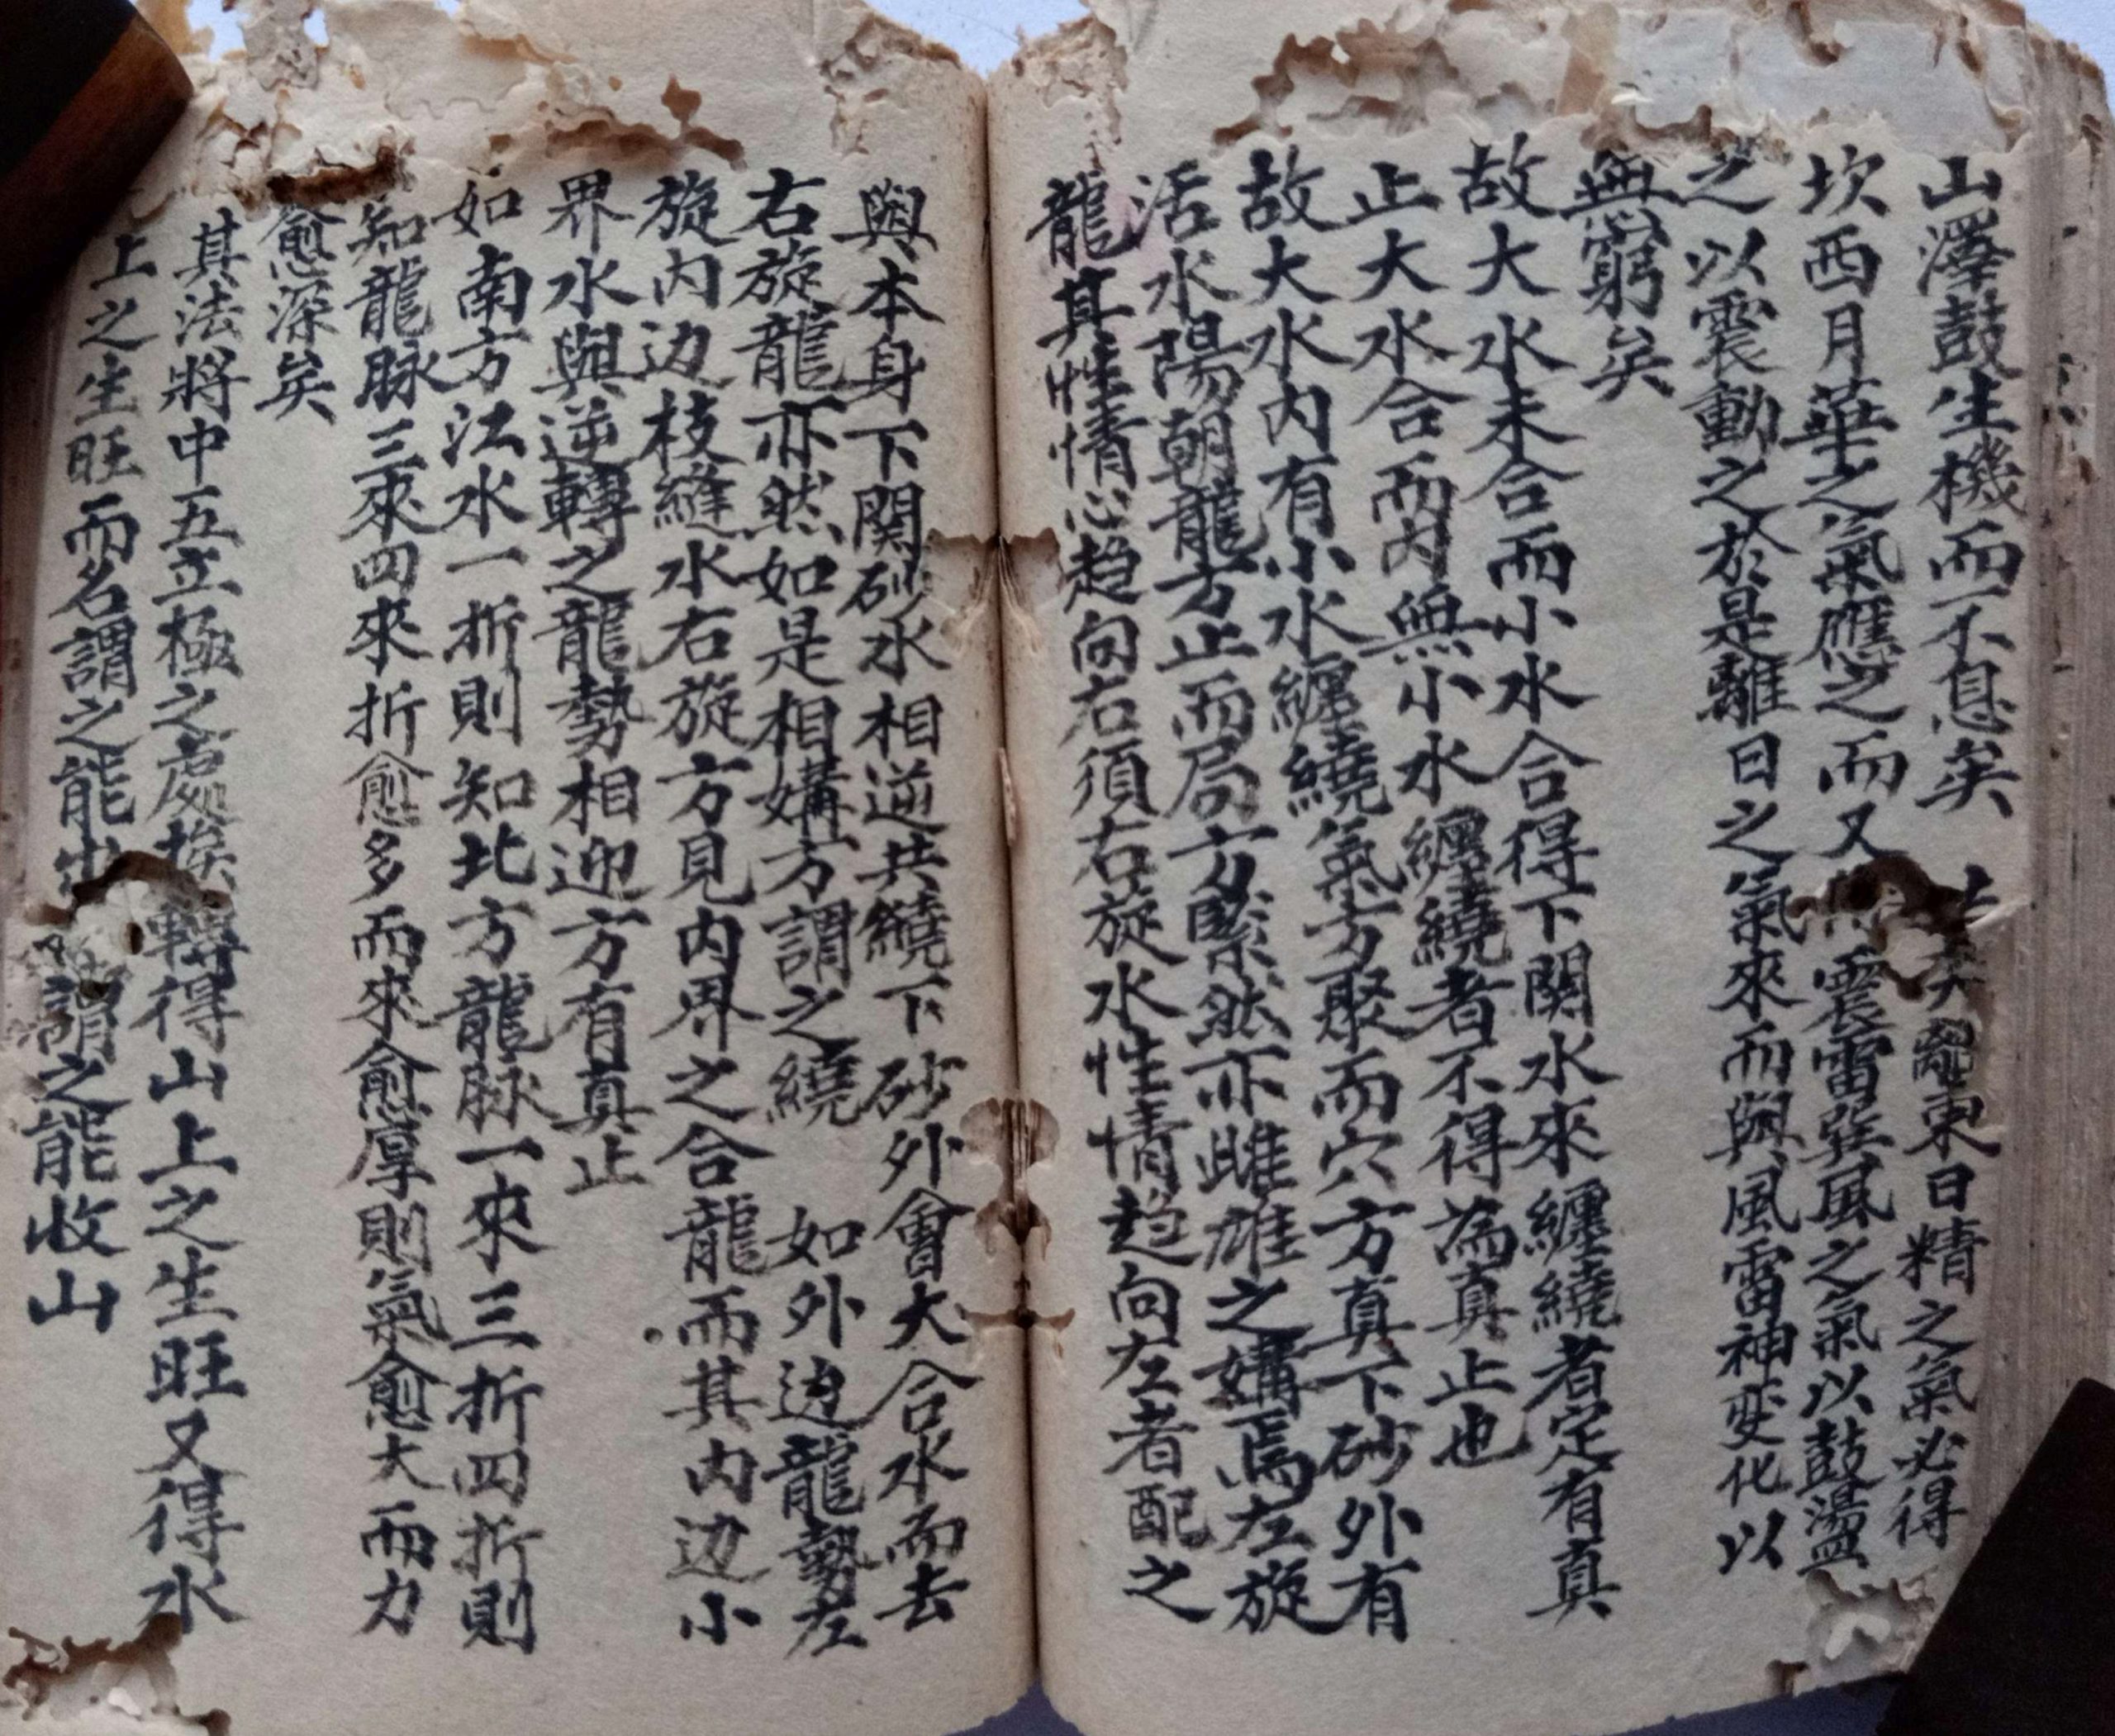 山澤鼓生機而不息矣 離東日精之氣必得
坎西月華之氣應之而又 震雷巽風之氣以鼓盪
之以震動之於是離日之氣來而與風雷神变化以
無窮矣
故大水未合而小水合得下関水來纏繞者定有真
止大水合而内無小水纏繞者不得為真止也
故大水内有小水纏繞氣方聚而穴方真下砂外有
活水陽朝龍方止而局方緊然亦雌雄之媾焉左旋
龍其性情必趋向右須右旋水性情趋向左者配之
與本身下関砂水相逆共繞下砂外會大合水而去
右旋龍亦然如是相媾方謂之繞 如外边龍勢左
旋内边枝縫水右旋方見内界之合龍而其内边小
界水與逆轉之龍勢相迎方有真止
如南方江水一折則知北方龍脉一來三折四折則
知龍脉三來四來折愈多而來愈厚則氣愈大而力
愈深矣
其法將中五立極之處挨轉得山上之生旺又得水
上之生旺而名謂之能出 謂之能收山